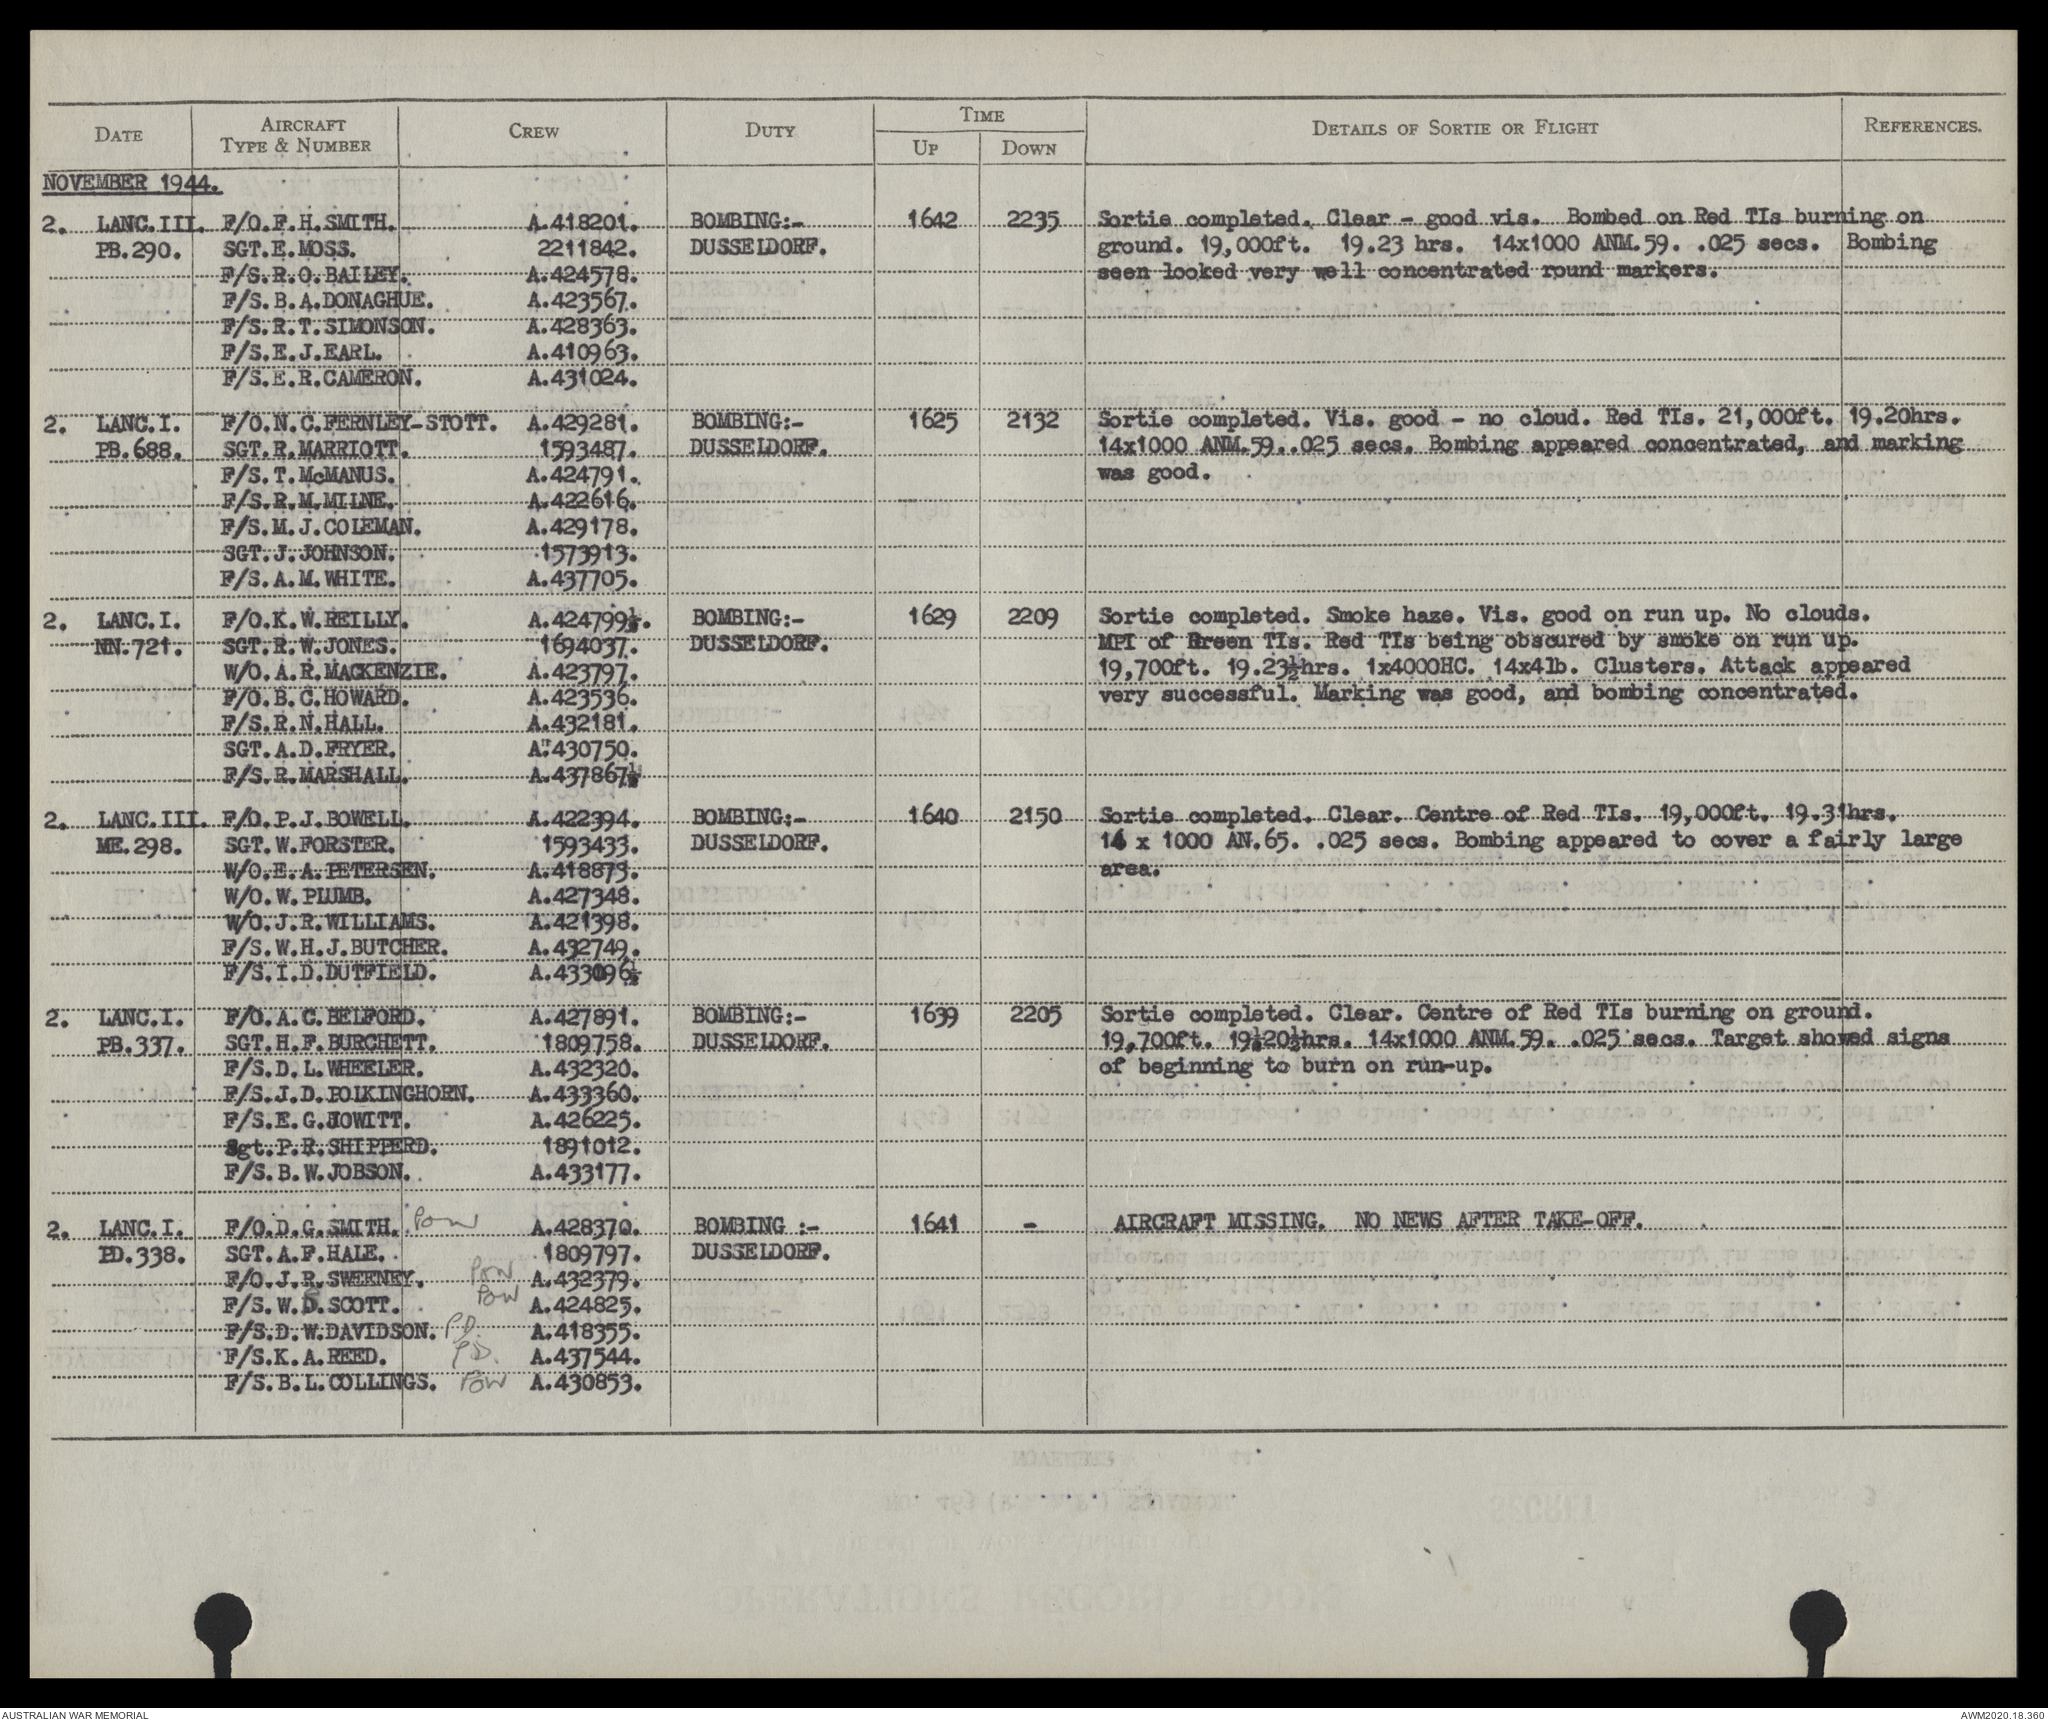 DATE AIRCRAFT TYPE & NUMBER CREW DUTY TIME UP DOWN DETAILS OF SORTIE OR FLIGHT REFERENCES.
NOVEMBER 1944.
2. LANC.III. F/O.F.H.SMITH. A.418201. BOMBING:- 1642 2235 Sortie completed. Clear - good vis. Bombed on Red TIs burning on
PB.290. SGT.E.MOSS. 2211842. DUSSELDORF. ground. 19,000ft. 19.23 hrs. 14x1000 ANM.59. .025 secs. Bombing
F/S.R.O.BAILEY. A.424578. seen looked very well concentrated round markers.
F/S.B.A.DONAGHUE. A.423567.
F/S.R.T.SIMONSON. A.428363.
F/S.E.J.EARL. A.410963.
F/S.E.R.CAMERON. A.431024.
2. LANC.I. F/O.N.C.FERNLEY-STOTT. A.429281. BOMBING:- 1625 2132 Sortie completed. Vis. good - no cloud. Red TIs. 21,000ft. 19.20hrs.
PB.688. SGT.R.MARRIOTT. 1593487. DUSSELDORF. 14x1000 ANM.59. .025 secs. Bombing appeared concentrated, and marking
F/S.T.McMANUS. A.424791. was good.
F/S.R.M.MILNE. A.422616.
F/S.M.J.COLEMAN. A.429178.
SGT.J.JOHNSON. 1573913.
F/S.A.M.WHITE. A.437705.
2. LANC.I. F/O.K.W.REILLY. A.424799. BOMBING:- 1629 2209 Sortie completed. Smoke haze. Vis. good on run up. No clouds.
NN.721. SGT.R.W.JONES. 1694037. DUSSELDORF. MPI of Green TIs. Red TIs being obscured by smoke on run up.
W/O.A.R.MACKENZIE. A.423797. 19,700ft. 19.23½hrs. 1x4000HC. 14x4lb. Clusters. Attack appeared
F/O.B.C.HOWARD. A.423536. very successful. Marking was good, and bombing concentrated.
F/S.R.N.HALL. A.432181.
SGT.A.D.FRYER. A.430750.
F/S.R.MARSHALL. A.437867
2. LANC.III. F/O.P.J.BOWELL. A.422394. BOMBING:- 1640 2150 Sortie completed. Clear. Centre of Red TIs. 19,000ft. 19.31hrs.
ME.298. SGT.W.FORSTER. 1593433. DUSSELDORF. x 1000 AN.65. .025 secs. Bombing appeared to cover a fairly large
W/O.E.A.PETERSEN. A.418873. area.
W/O.W.PLUMB. A.427348.
W/O.J.R.WILLIAMS. A.421398.
F/S.W.H.J.BUTCHER. A.432749.
F/S.I.D.DUTFIELD. A.433096
2. LANC.I. F/O.A.C.BELFORD. A.427891. BOMBING:- 1639 2205 Sortie completed. Clear. Centre of Red TIs burning on ground.
PB.337. SGT.H.F.BURCHETT. 1809758. DUSSELDORF. 19,700ft. 19.20½hrs. 14x1000 ANM.59. .025 secs. Target showed signs
F/S.D.L.WHEELER. A.432320. of beginning to burn on run-up.
F/S.J.D.POLKINGHORN. A.433360.
F/S.E.G.JOWITT. A.426225.
Sgt.P.R.SHIPPERD. 1891012.
F/S.B.W.JOBSON. A.433177.
2. LANC.I. F/O.D.G.SMITH. POW A.428370. BOMBING :- 1641 - AIRCRAFT MISSING. NO NEWS AFTER TAKE-OFF.
PD.338. SGT.A.F.HALE. 1809797. DUSSELDORF.
F/O.J.R.SWEENEY. POW A.432379.
F/S.W.D.SCOTT. POW A.424825.
F/S.D.W.DAVIDSON. P.D. A.418355.
F/S.K.A.REED. P.D. A.437544.
F/S.B.L.COLLINGS. POW A.430853.
AUSTRALIAN WAR MEMORIAL AWM2020.18.360